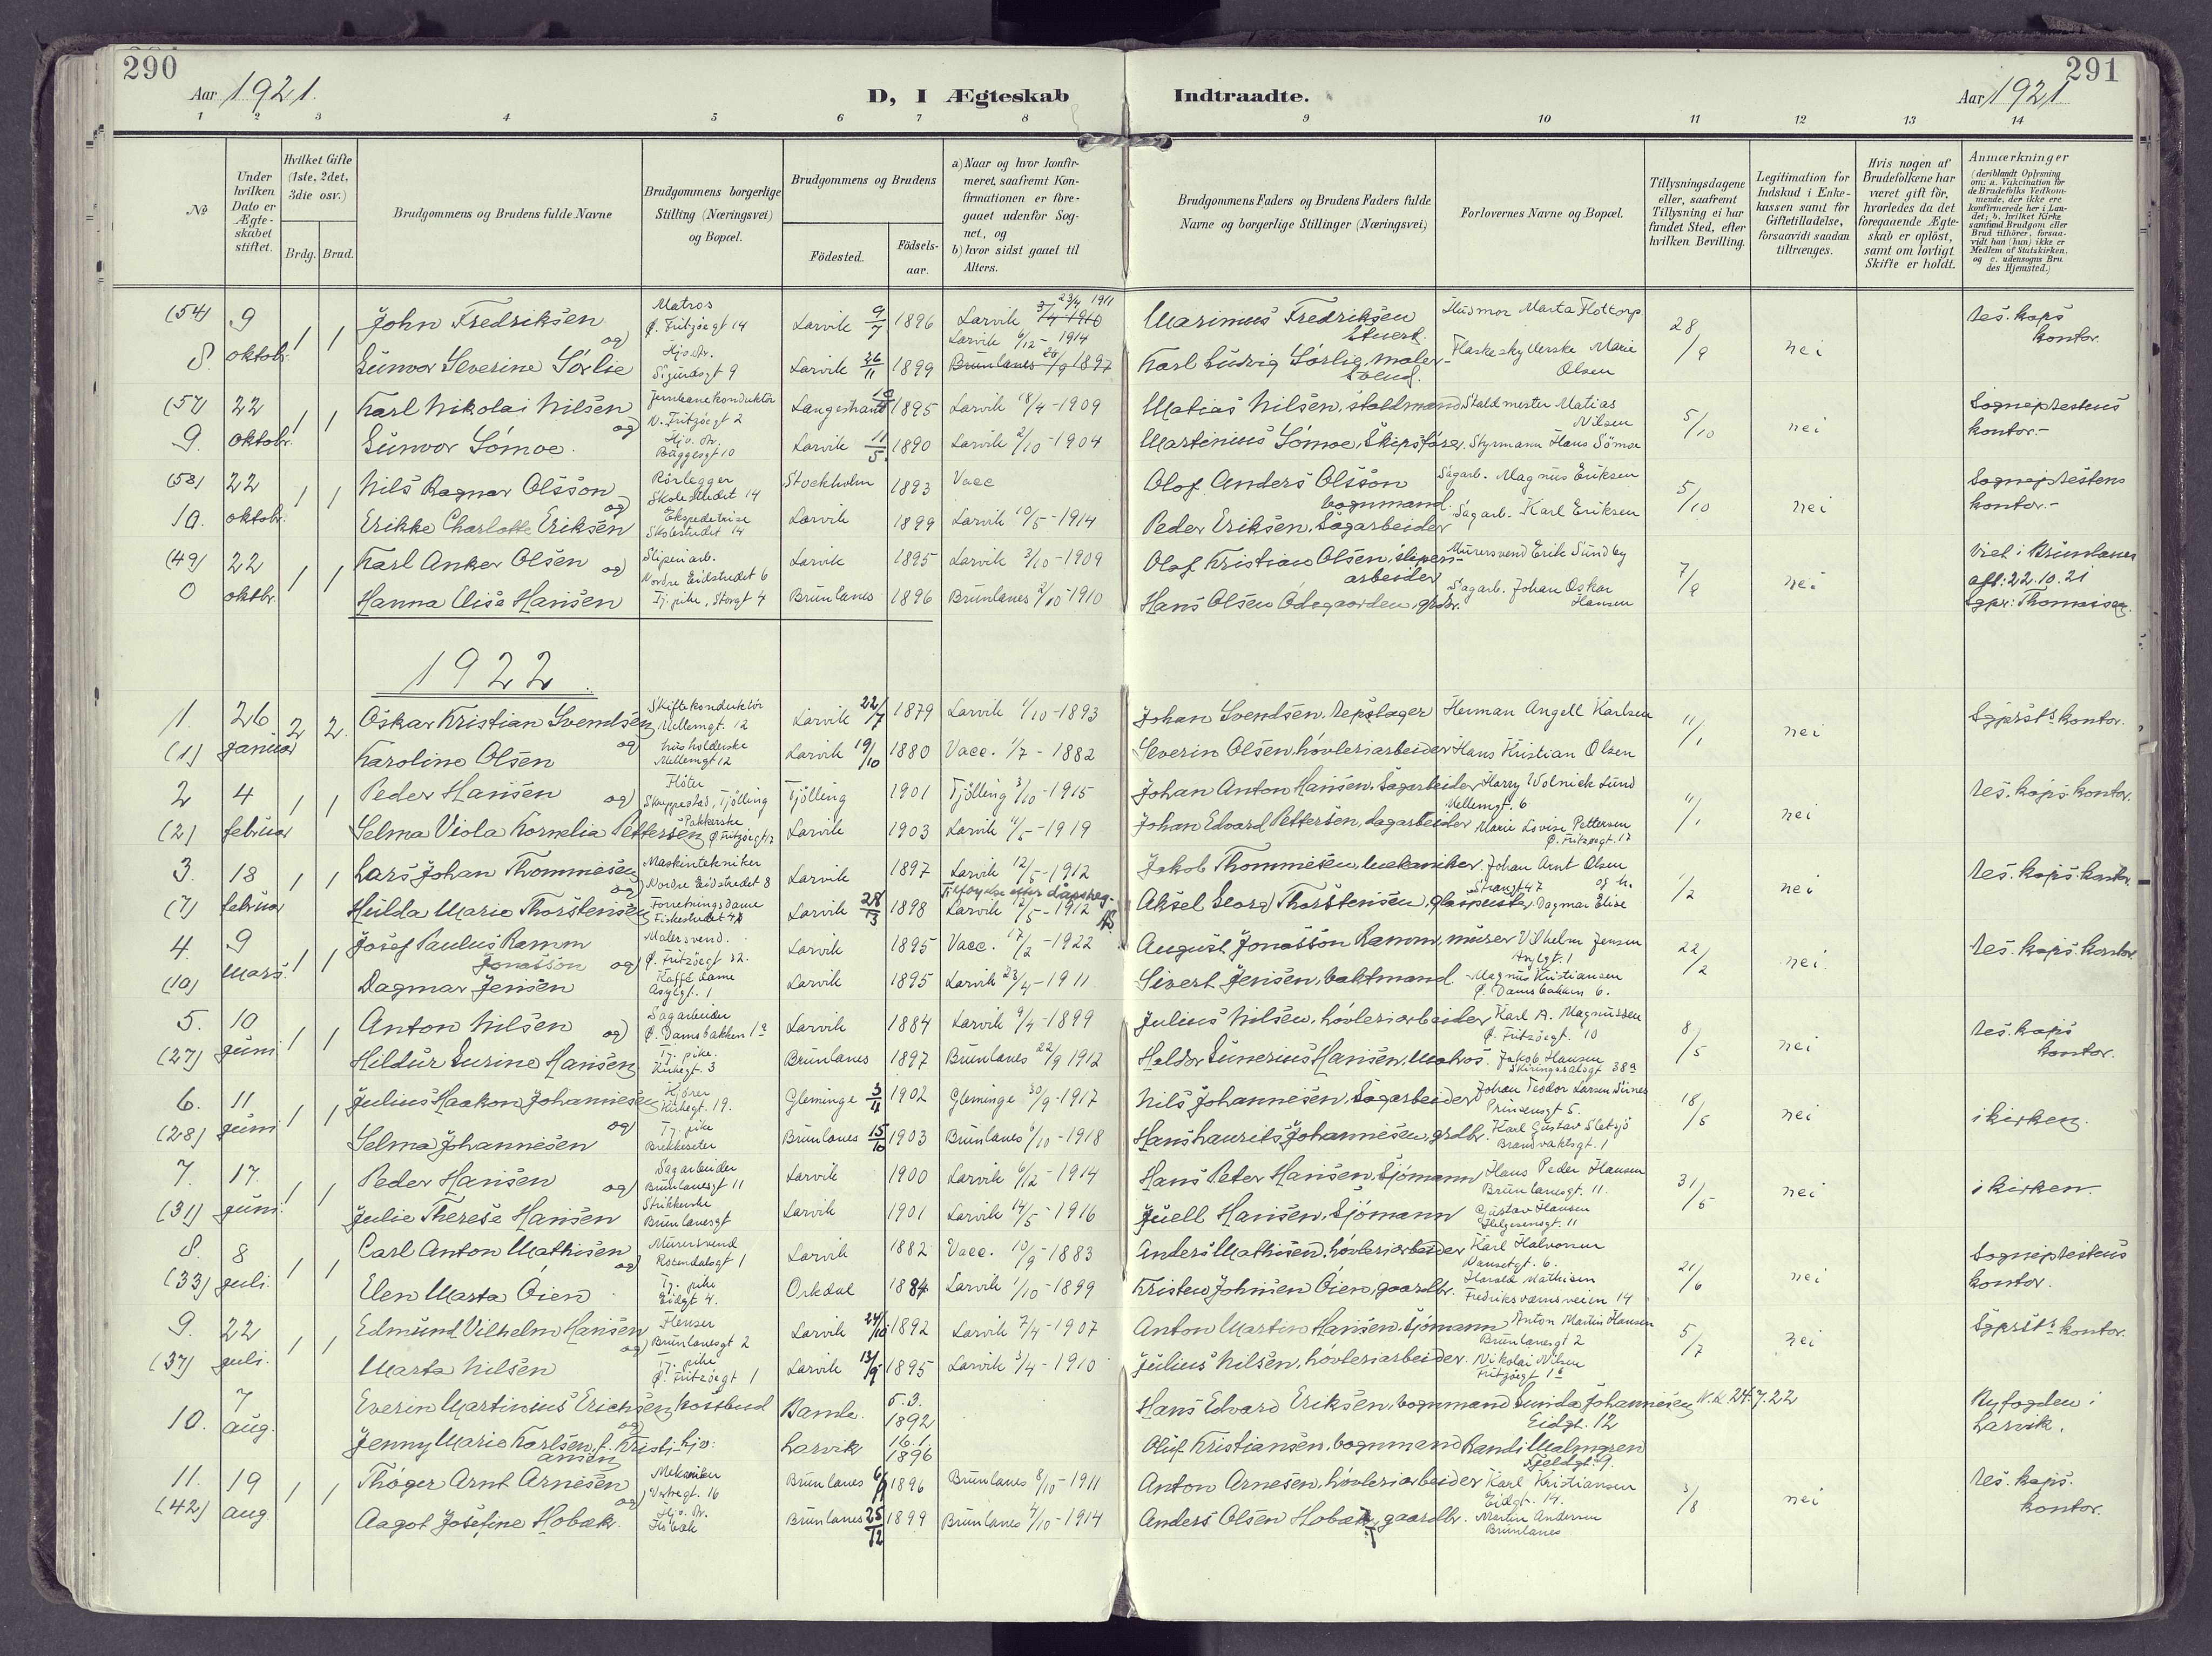 290
291
Aar 1921.
D, I Ægteskab
Indtraadte.
Aar 1921
1 2 3 4 5 6 7 8 9 10 11 12 13 14
No
Under hvilken Dato er Ægteskabet stiftet.
Hvilket Gifte (1ste, 2det, 3die osv.)
Brdg. Brud.
Brudgommens og Brudens fulde Navne
Brudgommens borgerlige Stilling (Næringsvei) og Bopæl.
Brudgommens og Brudens
Födested.
Födselsaar.
a) Naar og hvor konfirmeret, saafremt Konfirmationen er foregaaet udenfor Sognet, og
b) hvor sidst gaaet til Alters.
Brudgommens Faders og Brudens Faders fulde Navne og borgerlige Stillinger (Næringsvei)
Forlovernes Navne og Bopæl.
Tillysningsdagene eller, saafremt Tillysning ei har fundet Sted, efter hvilken Bevilling.
Legitimation for Indskud i Enkekassen samt for Giftetilladelse, forsaavidt saadan tiltrænges.
Hvis nogen af Brudefolkene har været gift för, hvorledes da det foregaaende Ægteskab er oplöst, samt om lovligt Skifte er holdt.
Anmærkninger
(deriblandt Oplysning om: a. Vakcination for de Brudefolks Vedkommende, der ikke ere konfirmerede her i Landet; b. hvilket Kirkesamfund Brudgom eller Brud tilhörer, forsaavidt han (hun) ikke er Medlem af Statskirken, og c. udensogns Brudes Hjemsted.)
(54) 9 1 1 John Fredriksen og Matros Ø. Fritzöegt 14 Larvik 9/7 1896 Larvik 3/4 1910 23/4 1911 Marinius Fredriksen Stuert. Husmor Marta Flottorp 28/9 nei Res. kaps kontor.
8. oktobr. Gunvor Severine Sörlie Hjv. dtr. Sigurdsgt 9 Larvik 26/11 1899 Larvik 6/12 - 1914 Brunlanes 26/9 1897 Karl Ludvig Sörlie, malersvend. Flaskeskyllerske Marie Olsen
(57) 22 1 1 Karl Nikolai Nilsen og Jernbanekonduktör N. Fritzöegt 2 Langestrand 1895 Larvik 18/4 - 1909 Matias Nilsen, staldmand Staldmester Matias Nilsen 5/10 nei Sogneprestens kontor.-
9. oktobr. Gunvor Sömoe. Hjv. dtr. Baggesgt 10 Larvik 11/5 1890 Larvik 2/10 - 1904 Martinius Sömoe, Skipsförer. Styrmann Hans Sömoe
(58) 22 1 1 Nils Ragnar Olsson og Rörlegger Skolestredet 14 Stockholm 1893 Vacc Olof Anders Olsson vognmand. Sagarb. Magnus Eriksen 5/10 nei Sogneprestens kontor.-
10. oktobr. Erikke Charlotte Eriksen Ekspeditrise Skolestredet 14 Larvik 1899 Larvik 10/5 - 1914 Peder Eriksen, Sagarbeider Sagarb. Karl Eriksen
(49) 22 1 1 Karl Anker Olsen og Sliperiarb. Nordre Eidstredet 6 Larvik 1895 Larvik 3/10 - 1909 Olaf Kristian Olsen, sliperiarbeider Murersvend Erik Sundby 7/9 nei Viet i Brunlanes
0 oktbr. Hanna Elise Hansen Tj. pike, Storgt 4 Brunlanes 1896 Brunlanes 2/10 - 1910 Hans Olsen Ödegaarden, grdbr. Sagarb. Johan Oskar Hansen aft: 22.10.21 Sgpr: Thomisen.
1922.
1. 26 2 2. Oskar Kristian Svendsen og Skiftekonduktör Mellemgt. 12 Larvik 22/7 1879 Larvik 1/10 - 1893 Johan Svendsen, repslager Herman Angell Karlsen 11/1 nei Sgprsts kontor.
(1) januar Karoline Olsen husholderske Mellemgt 12 Larvik 19/10 1880 Vacc. 1/7 - 1882 Severin Olsen, hövleriarbeider Hans Kristian Olsen
2 4 1 1 Peder Hansen og Flöter Skuppestad, Tjölling Tjölling 1901 Tjölling 3/10 - 1915 Johan Anton Hansen, Sagarbeider Harry Wolnick Lund Mellemgt. 6 11/1 nei Res. kaps. kontor.
(2) februar Selma Viola Kornelia Pettersen Pakkerske Ø. Fritzöegt 17 Larvik 1903 Larvik 11/5 - 1919 Johan Edvard Pettersen, dagarbeider Marie Lovise Pettersen Ø. Fritzöegt. 17
3. 18 1 1 Lars Johan Thommesen og Maskintekniker Nordre Eidstredet 8 Larvik 1897 Larvik 12/5 - 1912 Jakob Thommesen, mekaniker. Johan Arnt Olsen Strandgt 47 og h. 1/2 nei Res. kaps. kontor
(7) februar Hulda Marie Thorstensen Forretningsdame Fiskestredet 4 Larvik 28/3 1898 Tilföyelse efter dåpsreg. Larvik 12/5 - 1912 Aksel Georg Thorstensen, glaspuster Dagmar Elise
4. 9 1 1 Josef Paulus Ramm Jonasson og Malersvend. Ø. Fritzöegt 32. Larvik 1895 Vacc. 17/2 - 1922 August Jonasson Ramm, murer Vilhelm Jensen Asylgt. 1 22/2 nei. Res. kaps. kontor
(10) Mars. Dagmar Jensen Kaffedame Asylgt. 1 Larvik 1895 Larvik 23/4 - 1911 Sivert Jensen, vaktmand. Magnus Kristiansen Ø. Damsbakken 6.
5. 10 1 1 Anton Nilsen og Sagarbeider Ø. Damsbakken 1a Larvik 1884 Larvik 9/4 - 1899 Julius Nilsen, hövleriarbeider Karl A. Magnussen Ø. Fritzöegt. 10 8/5 nei Res. kaps kontor.
(27) juni Hildur Surine Hansen Tj. pike. Kirkegt. 3 Brunlanes 1897 Brunlanes 22/9 1912 Haldor Sunerius Hansen, Matros. Jakob Hansen Skiringssalsgt 38a
6. 11 1 1 Julius Haakon Johannesen og Kjörer Kirkegt. 19. Gleminge 3/4 1902 Gleminge 30/9 - 1917 Nils Johannesen, Sagarbeider Johan Teodor Larsen Prinsensgt 5. 18/5 nei i kirken.
(28) juni Selma Johannesen Tj. pike Brekkeseter Brunlanes 15/10 1903 Brunlanes 6/10 - 1918 Hans Laurits Johannesen, grdbr. Karl Gustav Sletsjö Brandvaktsgt. 1
7. 17. 1 1 Peder Hansen og Sagarbeider Brunlanesgt 11 Larvik 1900 Larvik 6/12 - 1914 Hans Peter Hansen, Sjömann Hans Peder Hansen Brunlanesgt. 11. 31/5 nei i kirken.
(31) juni. Julie Therese Hansen Strikkerske Brunlanesgt Larvik 1901 Larvik 14/5 - 1916 Juell Hansen, Sjömann Gustav Hansen Helgesensgt. 11
8. 8 1 1 Carl Anton Mathisen og Murersvend Rosendalsgt 1 Larvik 1882 Vacc. 10/9 - 1883 Anders Mathisen, hövleriarbeider Karl Halvorsen Nansetgt. 6. 21/6 nei Sogneprestens kontor.
(33) juli. Elen Marta Öien Tj. pike Eidgt 4. Orkdal 1884 Larvik 1/10 - 1899 Kristen Johnsen Öien, gaardbr. Harald Mathisen Fredriksværnsveien 14
9. 22 1 1 Edmund Vilhelm Hansen og Flenser Brunlanesgt 2 Larvik 24/10 1892 Larvik 7/4 - 1907 Anton Martin Hansen, Sjömann Anton Martin Hansen Brunlanesgt 2 5/7 nei Sgprsts kontor.
(37) juli. Marta Nilsen Tj. pike Ø. Fritzöegt 1 Larvik 13/9 1895 Larvik 3/4 - 1910 Julius Nilsen, hövleriarbeider. Nikolai Nilsen Fritzöegt 1b
10. 7 aug. Everin Martinius Erichsen, postbud og Bamle. 5.3. 1892 Hans Edvard Eriksen, vognmand Gunda Johannesen Eidgt. 12 N.K. 24.7.22 Byfogden i Larvik.
Jenny Marie Karlsen, f. Kristiansen hjv: Larvik 16.1. 1896 Oluf Kristiansen, vognmand Randi Malmgren Kjeldgt. 9.
11. 19 1 1 Thöger Arnt Arnesen og Mekaniker Verksgt. 16 Brunlanes 1896 Brunlanes 8/10 - 1911 Anton Arnesen, hövleriarbeider Karl Kristiansen Eidgt. 14. 3/8 nei Res. kaps. kontor.
(42) aug. Aagot Josefine Hobæk. Hjv. dtr. Hobæk Brunlanes 25/12 1899 Brunlanes 4/10 - 1914 Anders Olsen Hobæk, gaardbr. Martin Andersen Brunlanes